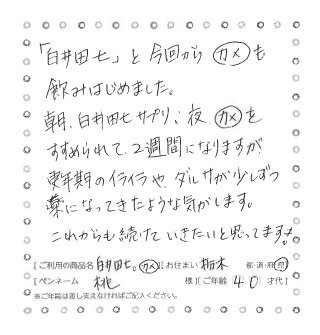 「白井田七」と今回からカメも
飲みはじめました。
朝、白井田七サプリ、夜、カメを
すすめられて、2週間になりますが、
更年期のイライラや、ダルサが少しずつ
薬になってきたような気がします。
これからも続けていきたいと思ってます!
[ご利用の商品名 白井田七。カメ] [お住まい 栃木 都・道・府・県]
[ペンネーム 桃 様] [ご年齢 40 才代]
※ご年齢は差し支えなければご記入ください。